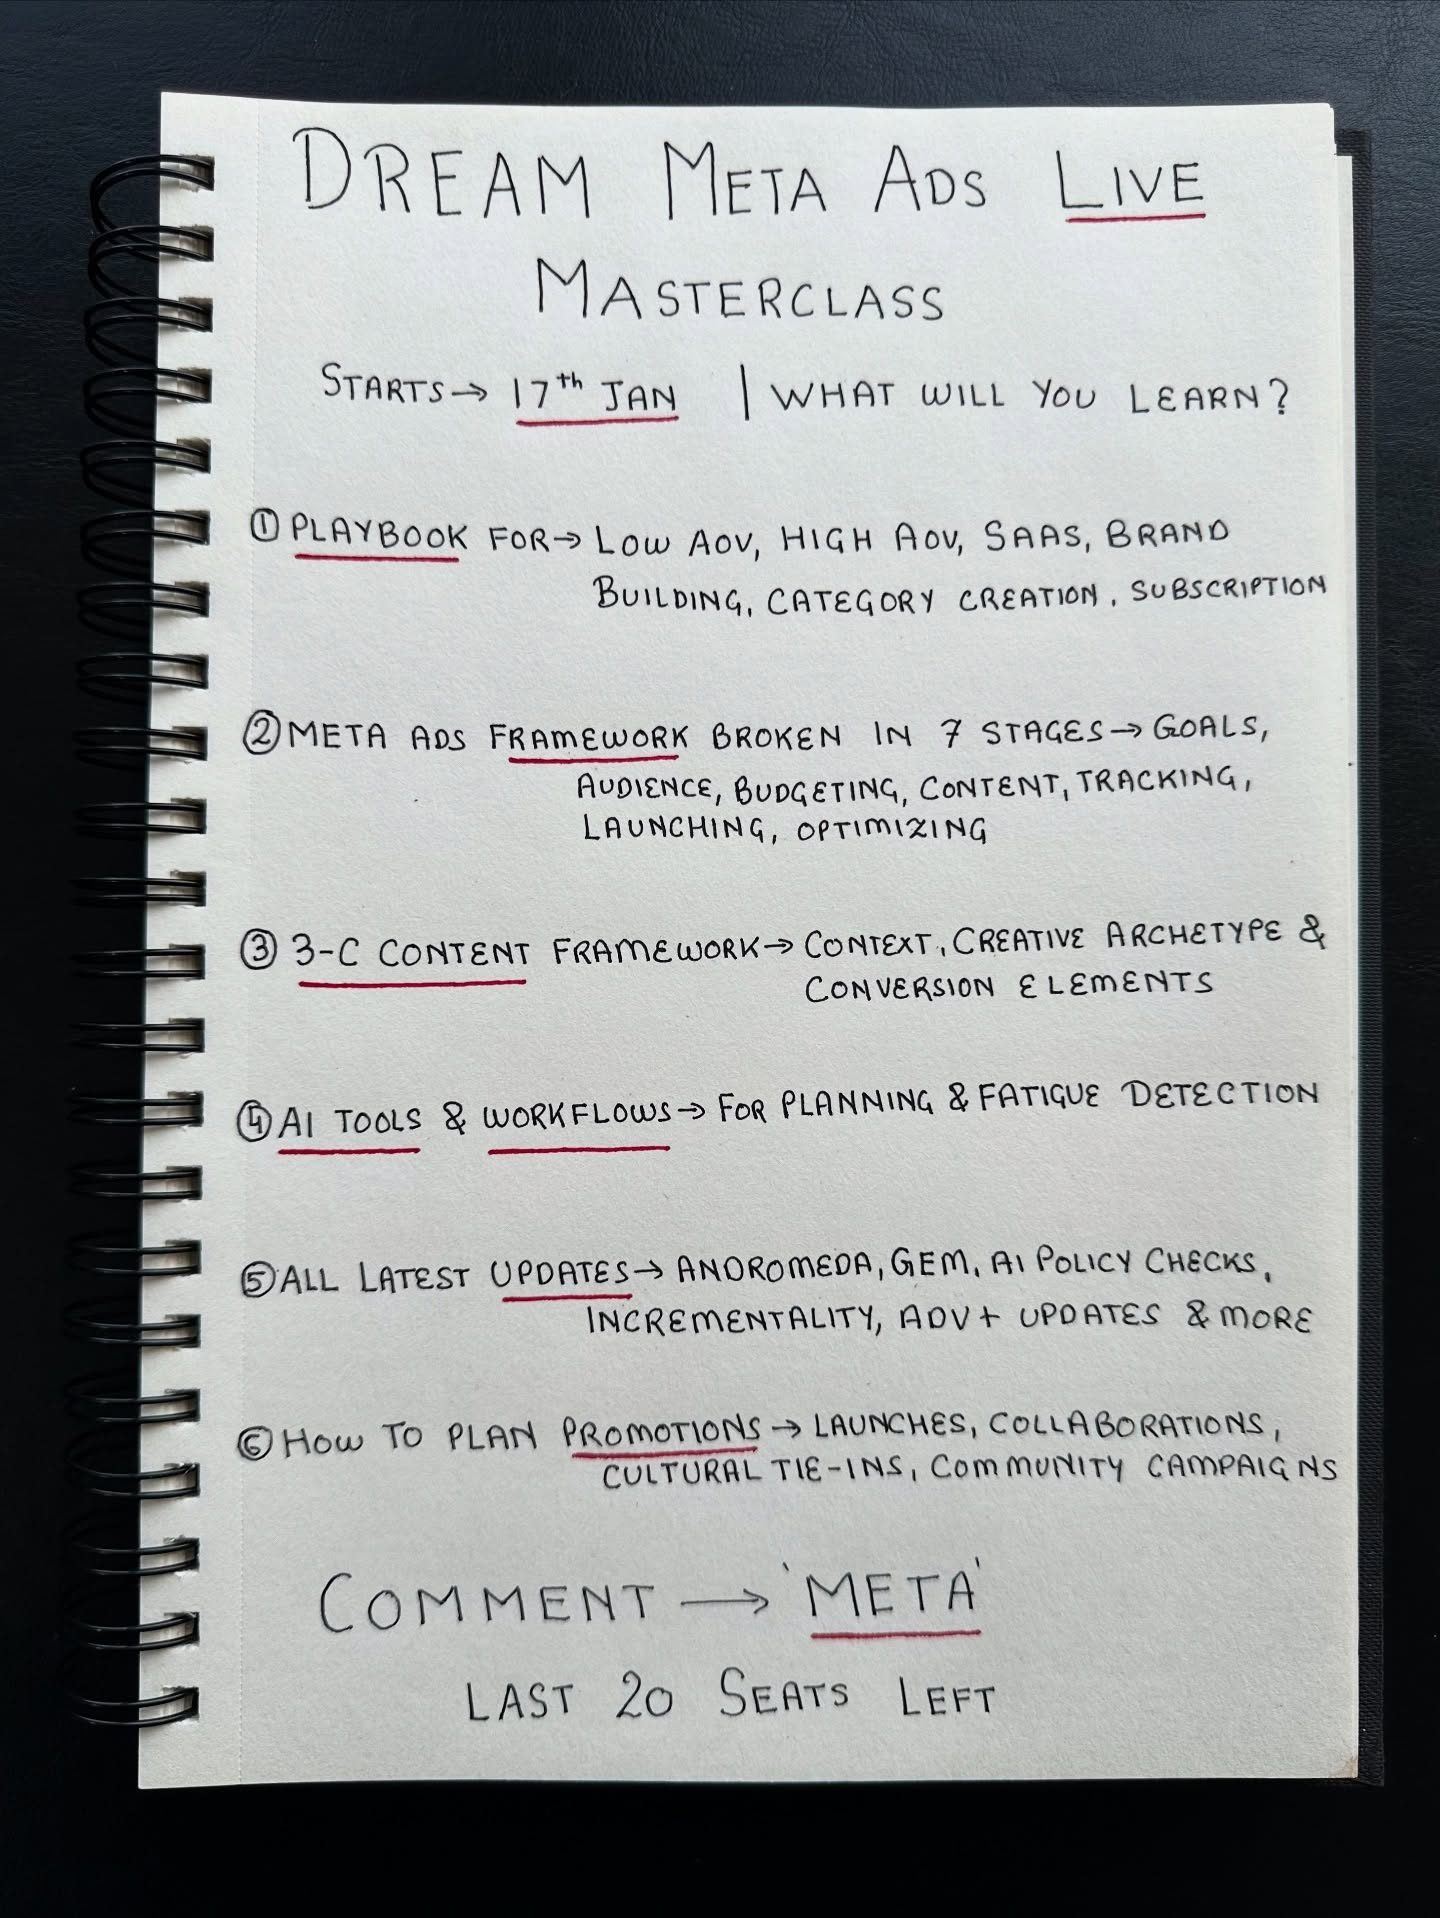 DREAM META ADS LIVE
MASTERCLASS
STARTS → 17th JAN | WHAT WILL YOU LEARN?
① PLAYBOOK FOR → LOW AOV, HIGH AOV, SAAS, BRAND
BUILDING, CATEGORY CREATION, SUBSCRIPTION
② META ADS FRAMEWORK BROKEN IN 7 STAGES → GOALS,
AUDIENCE, BUDGETING, CONTENT, TRACKING,
LAUNCHING, OPTIMIZING
③ 3-C CONTENT FRAMEWORK → CONTEXT, CREATIVE ARCHETYPE &
CONVERSION ELEMENTS
④ AI TOOLS & WORKFLOWS → FOR PLANNING & FATIGUE DETECTION
⑤ ALL LATEST UPDATES → ANDROMEDA, GEM, AI POLICY CHECKS,
INCREMENTALITY, ADV+ UPDATES & MORE
⑥ HOW TO PLAN PROMOTIONS → LAUNCHES, COLLABORATIONS,
CULTURAL TIE-INS, COMMUNITY CAMPAIGNS
COMMENT → 'META'
LAST 20 SEATS LEFT